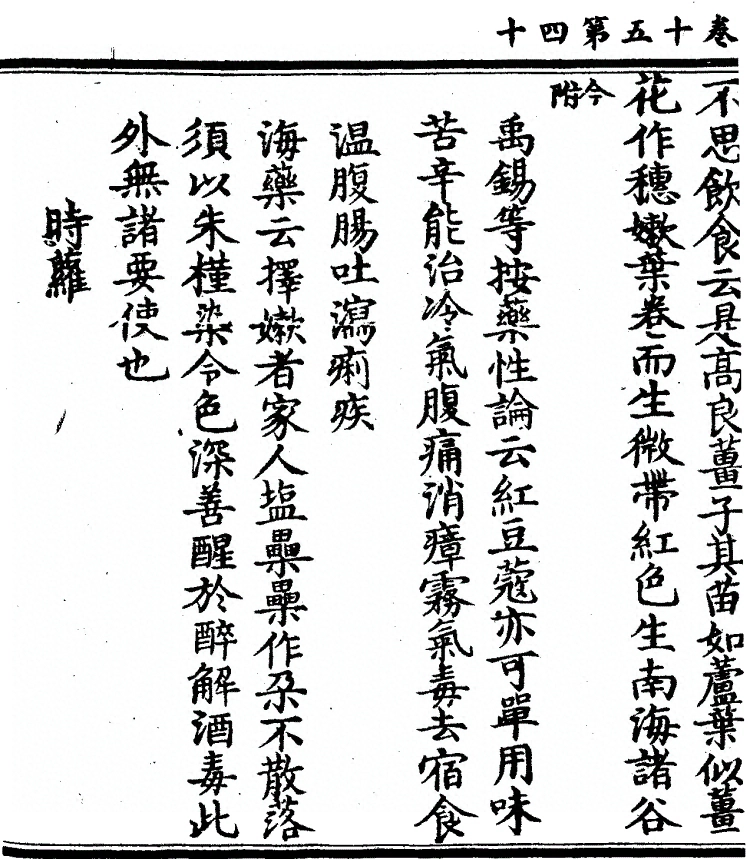 卷十五第四十
不思飲食云是高良薑子其苗如蘆葉似薑
花作穗嫩葉卷而生微帶紅色生南海諸谷
今附
禹錫等按藥性論云紅豆蔻亦可單用味
苦辛能治冷氣腹痛消瘴霧氣毒去宿食
温腹腸吐瀉痢疾
海藥云擇嫩者家人塩纍纍作朶不散落
須以朱槿染令色深善醒於醉解酒毒此
外無諸要使也
時蘿